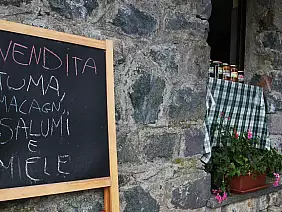 VENDITA
TUMA,
MACAGN,
SALUMI
E
MIELE